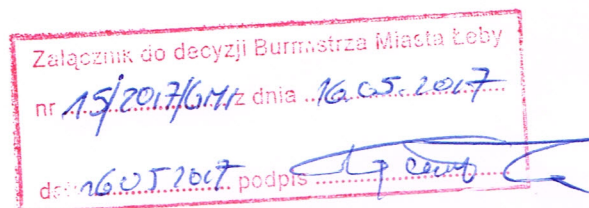 Załącznik do decyzji Burmistrza Miasta Łeby
nr 15/2017/GMI z dnia 16.05.2017
data 16.05.2017 podpis